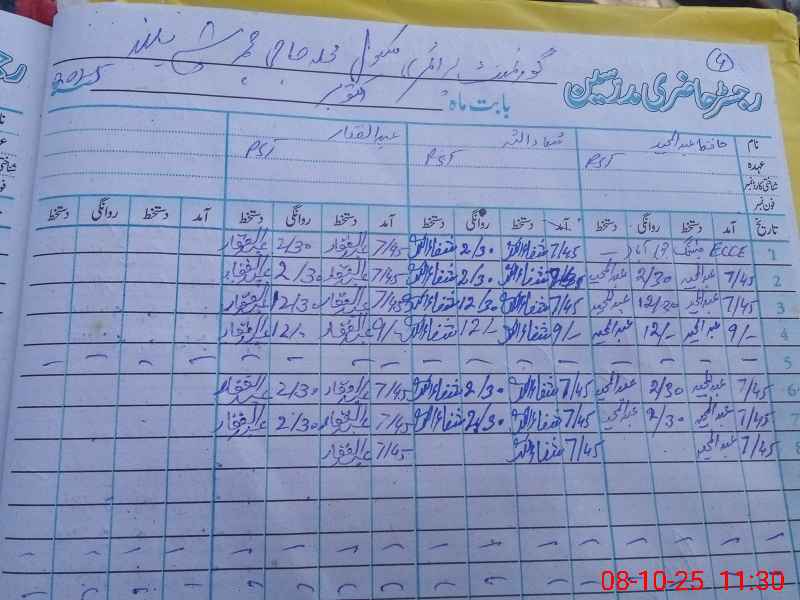 گورنمنٹ پرائمری سکول محلہ حاجی
رجسٹر حاضری مدرسین
بابت ماہ اکتوبر 2025
نام حافظ عبدالمجید شفاء اللہ عبدالغفار
عہدہ PST PST PST
شناختی کارڈ نمبر
فون نمبر
تاریخ آمد دستخط روانگی دستخط آمد دستخط روانگی دستخط آمد دستخط روانگی دستخط آمد دستخط روانگی دستخط
1 ECCE میٹنگ 7/45 شفاءاللہ 2/30 شفاءاللہ 7/45 عبدالغفار 2/30 عبدالغفار
2 7/45 عبدالمجید 2/30 عبدالمجید شفاءاللہ 2/30 شفاءاللہ 7/45 عبدالغفار 2/30 عبدالغفار
3 7/45 عبدالمجید 12/30 عبدالمجید 7/45 شفاءاللہ 12/30 شفاءاللہ 7/45 عبدالغفار 12/30 عبدالغفار
4 9/- عبدالمجید 12/- عبدالمجید 9/- شفاءاللہ 12/- شفاءاللہ 9/- عبدالغفار 12/- عبدالغفار
5
6 7/45 عبدالمجید 2/30 عبدالمجید 7/45 شفاءاللہ 2/30 شفاءاللہ 7/45 عبدالغفار 2/30 عبدالغفار
7 7/45 عبدالمجید 2/30 عبدالمجید 7/45 شفاءاللہ 2/30 شفاءاللہ 7/45 عبدالغفار 2/30 عبدالغفار
8 7/45 عبدالمجید 7/45 شفاءاللہ 7/45 عبدالغفار
08-10-25 11:30